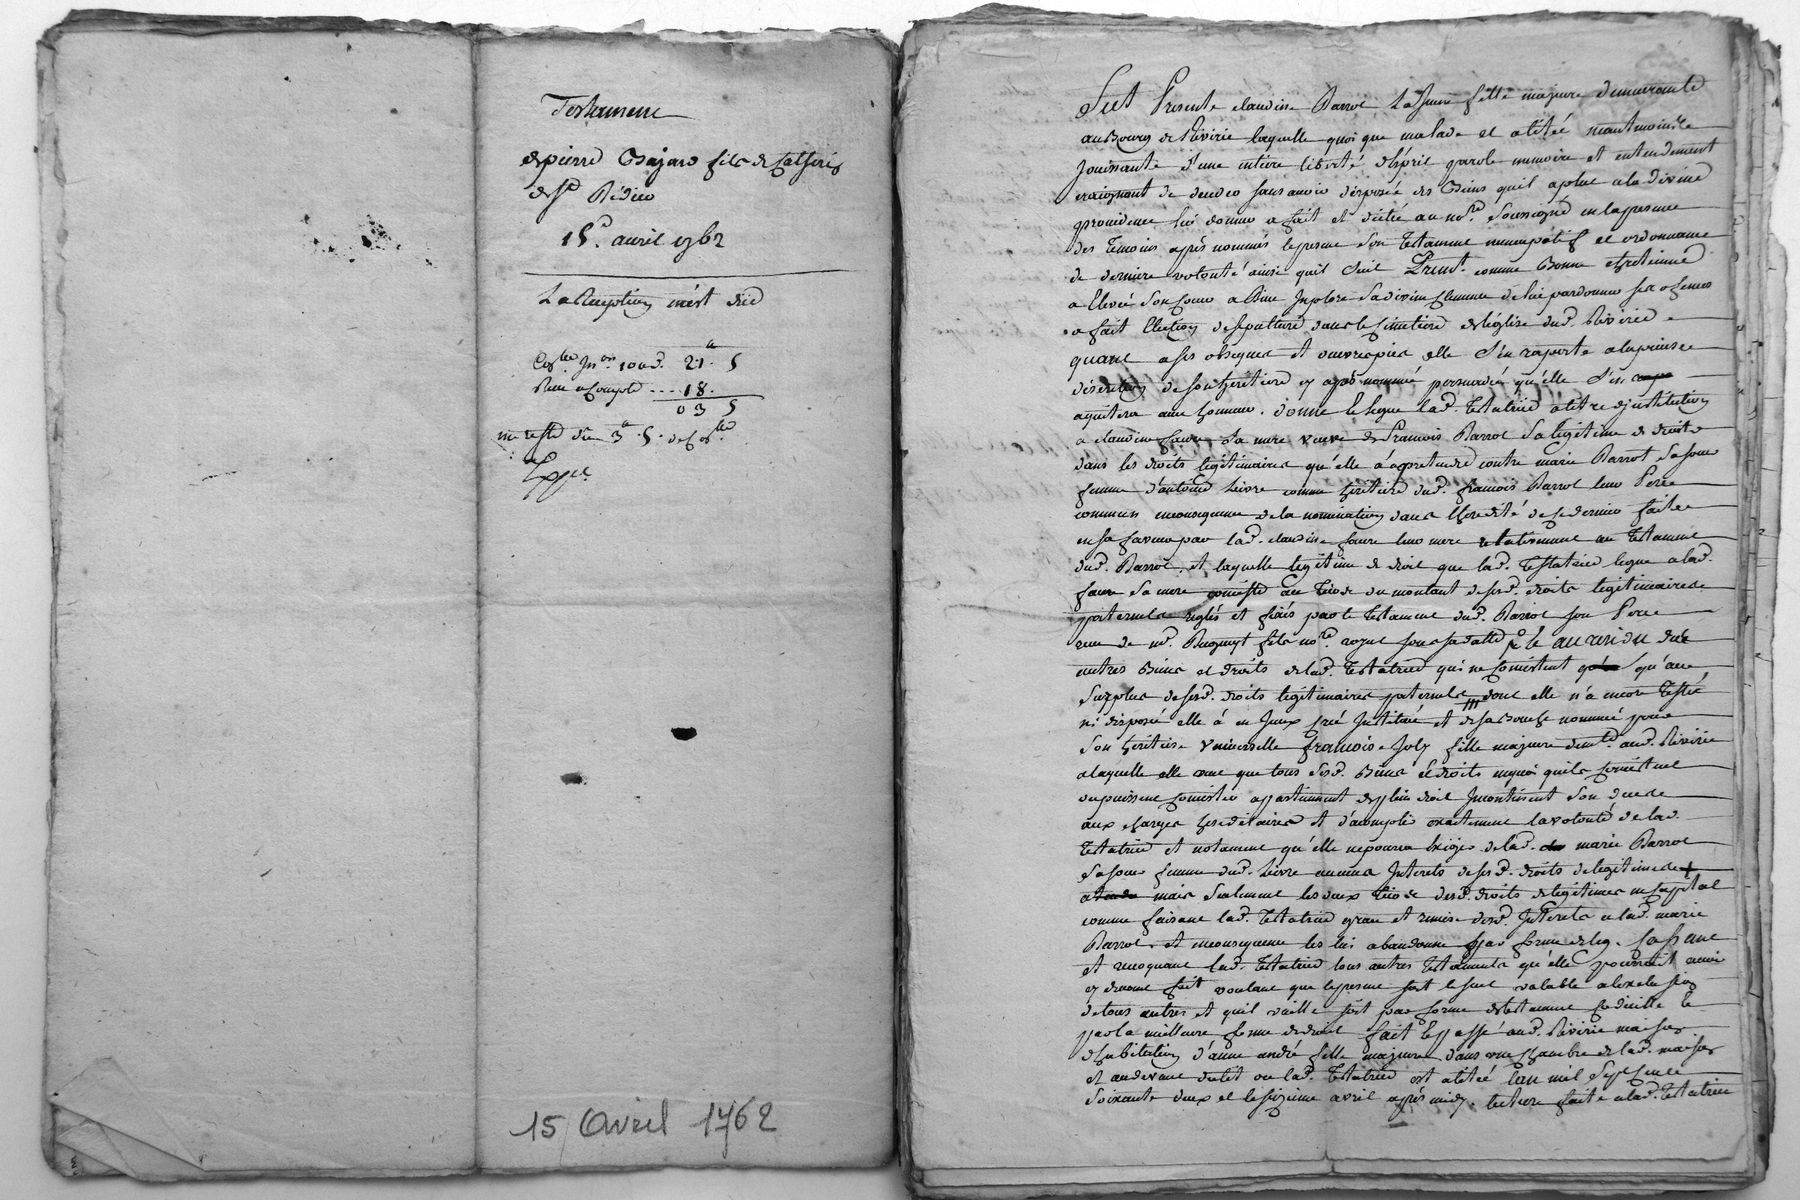 Testament
de pierre Bajard fils de
de St Bédieu
15e. avril 1762
La Reception m'est due
21. 5
Reçu a Compte .... 18.
03 5
me reste dû 3 . 5 .
15 Avril 1762
fut Presente claudine Barrot La Jeune fille majeure demeurante
au Bourg de Riverie laquelle quoi que malade et alitée neantmoins
Jouissante d'une entiere liberté d'esprit parole memoire et entendement
craignant de deceder sans avoir disposé des Biens qu'il a plut a la divine
providence lui donner a fait et dicté au nore. Soussigné en la presence
des temoins après nommés le present Son Testament nuncupatif et ordonnance
de derniere volonté ainsi quil Suit Premt. comme Bonne chretienne
a Elevé Son coeur a Dieu Implore Sa divine Clemence de lui pardonner ses offences
a fait Election de sepulture dans le Cimetiere de l'église dud. Riverie
quant a ses obseques et oeuvres pies elle S'en raporte a la prudence
discretion de son heritiere cy après nommée persuadée qu'elle S'en
aquitera avec honneur. donne et legue lad. Testatrice a titre d'institution
a claudine faure Sa mere veuve de francois Barrot Sa legitime de droit
dans les droits legitimaires qu'elle a a pretendre contre marie Barrot Sa soeur
femme d'antoine Lievre comme heritiere dud. francois Barrot leur Pere
commun en consequence de la nomination dans l'heredité de ce dernier faite
en sa faveur par lad. claudine faure leur mere relativement au Testament
dud. Barrot, et laquelle legitime de droit que lad. Testatrice legue a lad.
faure Sa mere consiste au tiers du montant de sesd. droits legitimaires
paternels reglés et fixés par le Testament dud. Barrot son Pere
reçu de me. fils nore. royal sous sa datte le au residu des
autres Biens et droits de lad. Testatrice qui ne consistent qu'au
Surplus de sesd. droits legitimaires paternels dont elle n'a encore Testé
ni disposé elle a en Iceux créé Institué et de sa Bouche nommée pour
Son heritiere Universelle francoise Joly fille majeure demte. aud. Riverie
a laquelle elle veut que tous sesd. Biens et droits en quoi quils consistent
ou puissent consister appartiennent de plein droit Incontinent Son decès
aux charges hereditaires et d'acomplir exactement la volonté de lad.
Testatrice et notament qu'elle ne pourra Exiger de lad. marie Barrot
Sa soeur femme dud. Lievre aucuns Interets de sesd. droits de legitime
mais Seulement les deux tiers desd. droits de legitimes en capital
comme faisant lad. Testatrice grace et remise desd. Interets a lad. marie
Barrot, et en consequence les lui abandonne par forme de leg. Cassant
et revoquant lad. Testatrice tous autres Testaments qu'elle pourroit avoir
cy devant fait voulant que le present soit le seul valable a l'exclusion
de tous autres et quil vaille soit par forme de testament Codicille et
par la meilleure forme de droit fait et passé aud. Riverie maison
d'habitation d'anne andré fille majeure dans une chambre de lad. maison
et au devant du lit ou lad. Testatrice est alitée L'an mil Sept cents
Soixante deux et le seizieme avril après midy. lecture faite a lad. Testatrice